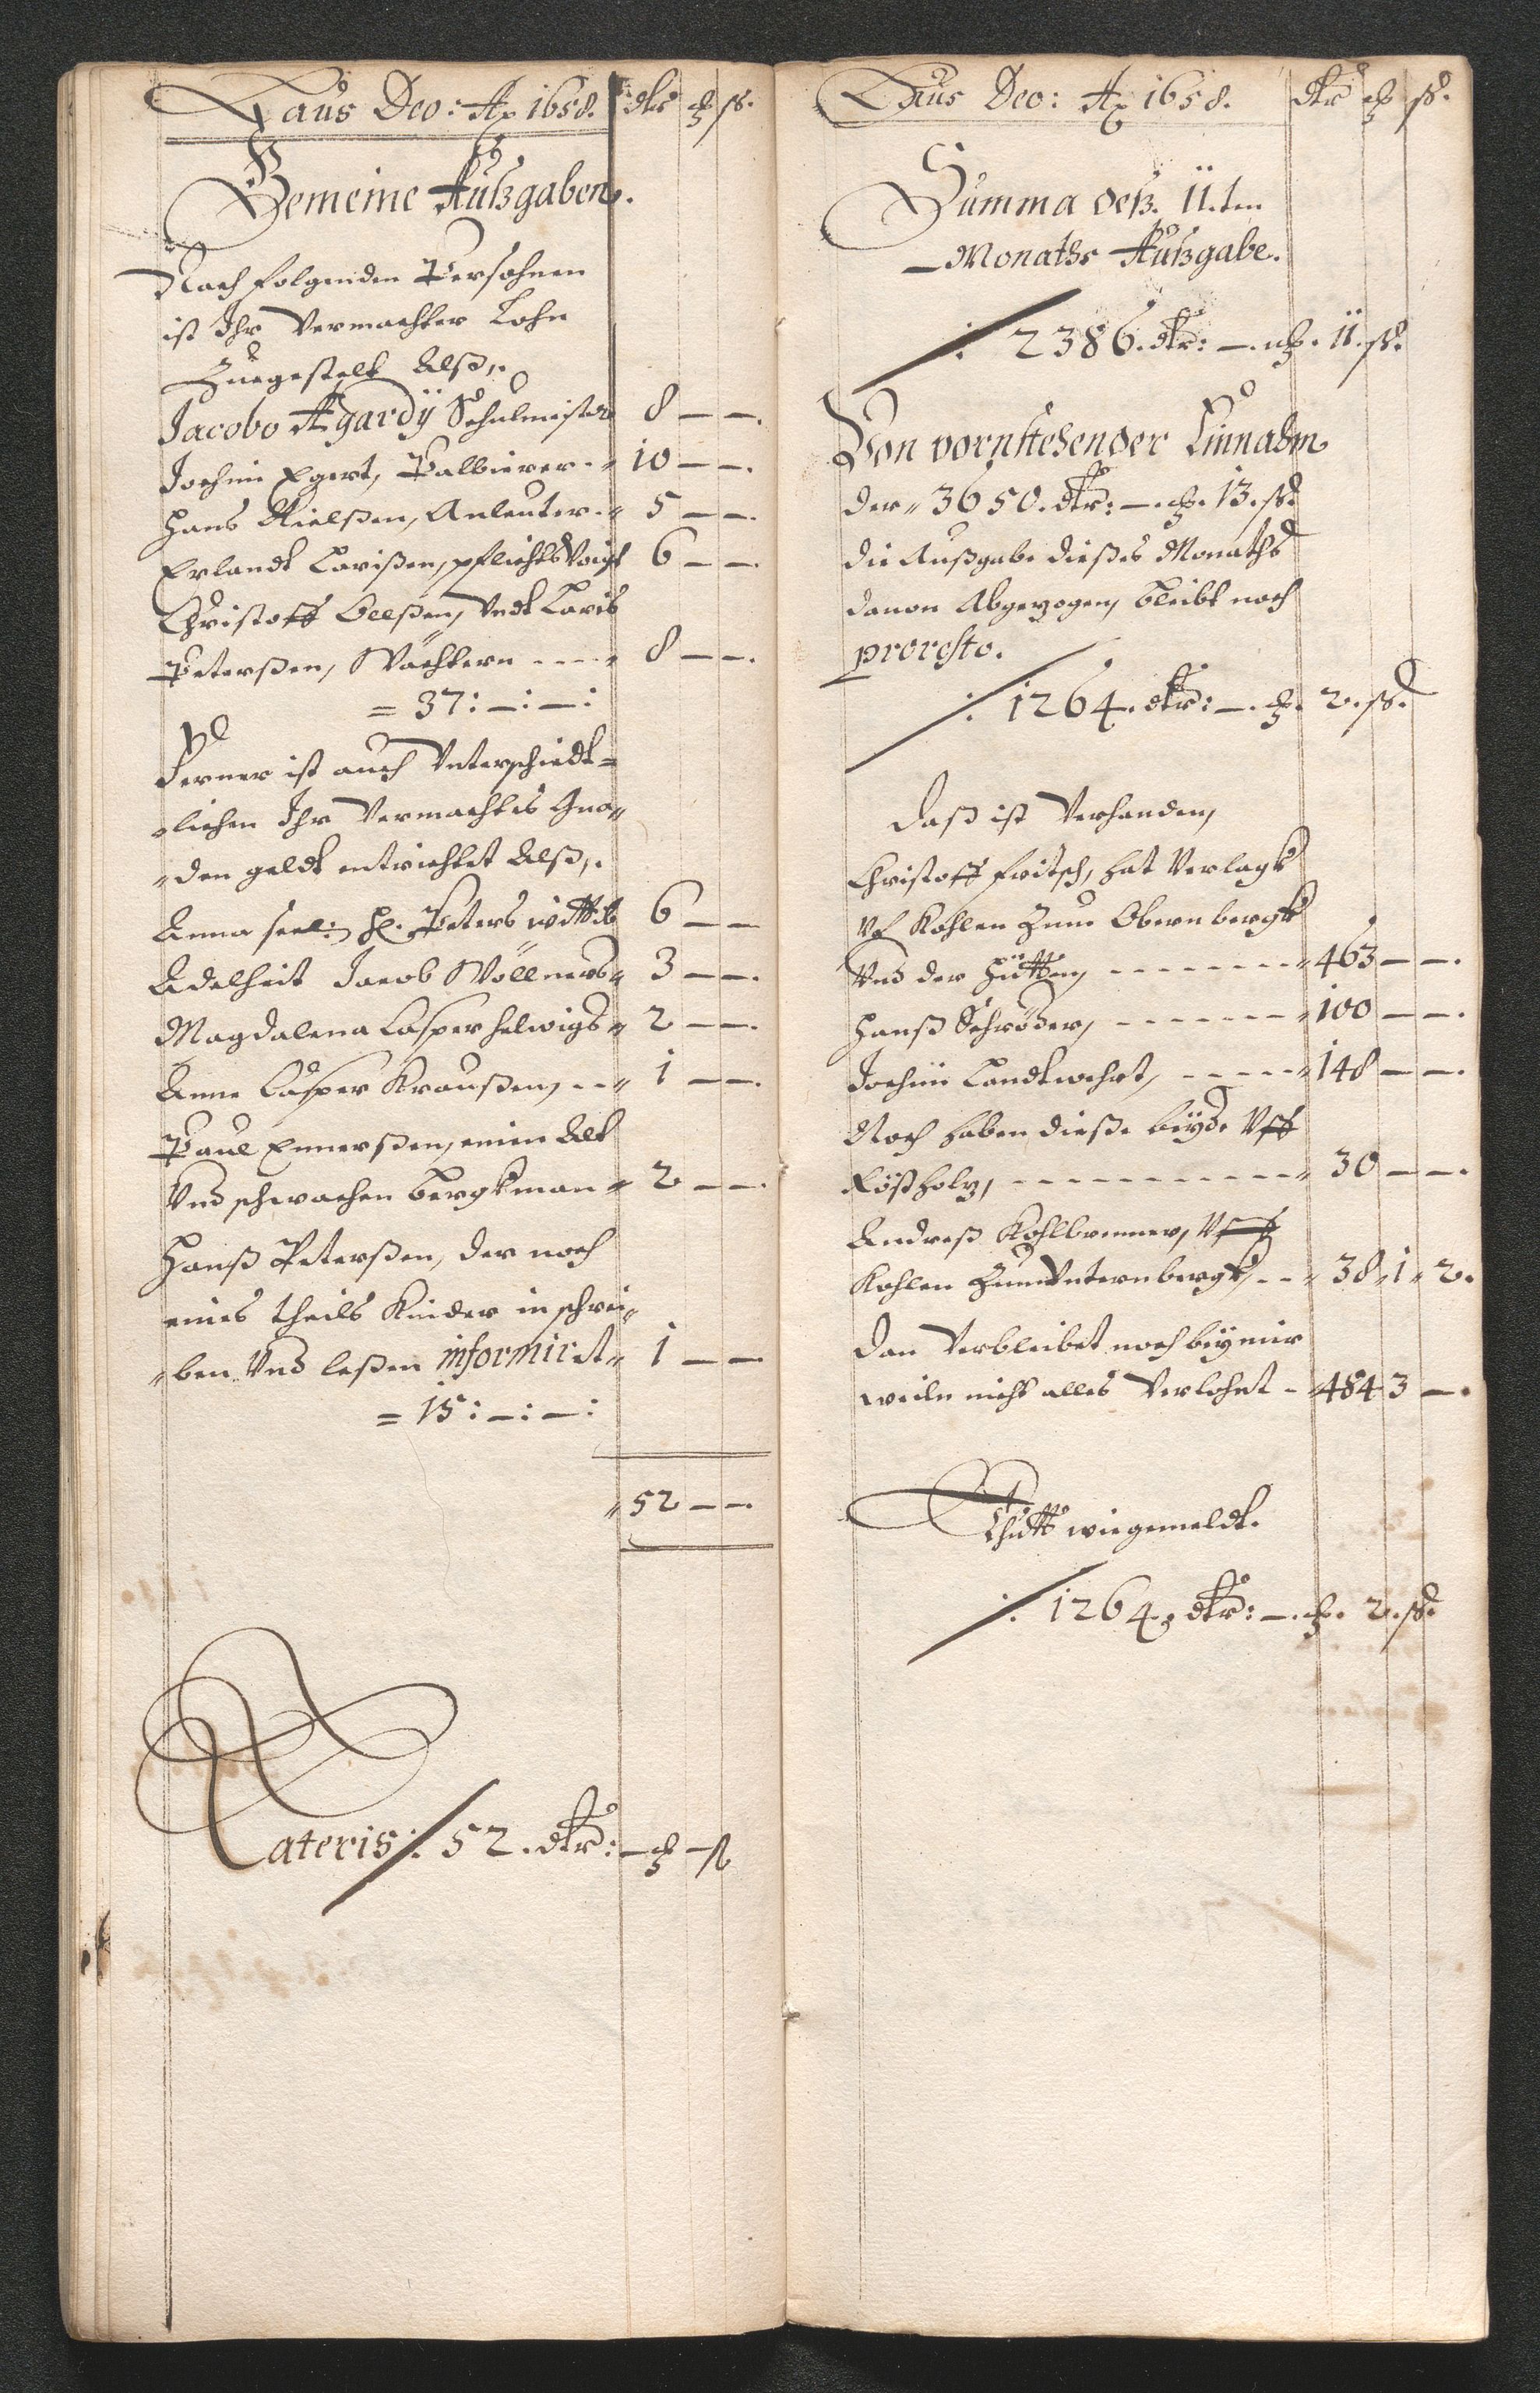 Laus Deo: Ao 1658. dlr ȹ ß.
Gemeine Außgaben.
Nachfolgenden Persohnen
ist Ihr Vermachter Lohn
Zuegestelt Alß,.
Jacobo Agardÿ Schulmeister 8 — —.
Jochim Egert, Palbierer .. 10 — —.
Hans Nielßen, Anleuter .. 5 — —.
Erlandt Larißen, pflichts Voigt 6 — —.
Christoff Oelßen, Vndt Laris
Peterßen, Wächtern ---- 8 — —.
= 37: —: —:
Ferner ist auch Vnterschiedt=
lichen Ihr Vermachtes Gna„
„den geldt entrichtet Alß,.
Anna seel: H. Peters wittib 6 — —
Adelheit Jacob Wöllners„ 3 — —.
Magdalena Casper Helwigs„ 2 — —.
Anne Casper Kraußen, --„ 1 — —.
Paul Ennerßen, einen Alt
Vnd schwachen bergkman„ 2 — —.
Hanß Peterßen, der noch
eines theils Kinder in schrei„
„ben Vnd leßen informiret„ 1 — —
= 15: —: —:
„52 — —.
Lateris: 52. dlr: — ȹ — ß
Laus Deo: Ao 1658. dlr ȹ ß.
Summa deß. 11.ten
Monaths Außgabe.
: 2386. dlr: —. ȹ. 11. ß.
Von vornstehender Einnahm
der„ 3650. dlr: —. ȹ. 13. ß.
die Außgabe dießes Monaths
dauon Abgezogen, bleibt noch
pro resto.
: 1264. dlr: —. ȹ. 2. ß.
Daß ist Verhanden,
Christoff Fritsch, hat Verlagk
Vf Kohlen Zum Obernbergk
Vnd der Hütten, --------„ 463 — —.
Hanß Schröder, -------„ 100 — —.
Jochim Landtwehrt, -----„ 148 — —.
Noch haben dieße beÿde Vff
Röstholz, -----------„ 30 — —.
Andreß Kohlbrenner, Vff
Kohlen Zum Vnternbergk, --„ 38„ 1„ 2.
Dan Verbleibet noch beÿ mir
weiln nicht alles Verlohnt - „484 3 —.
Thutt wie gemeldt.
: 1264. dlr: —. ȹ. 2. ß.